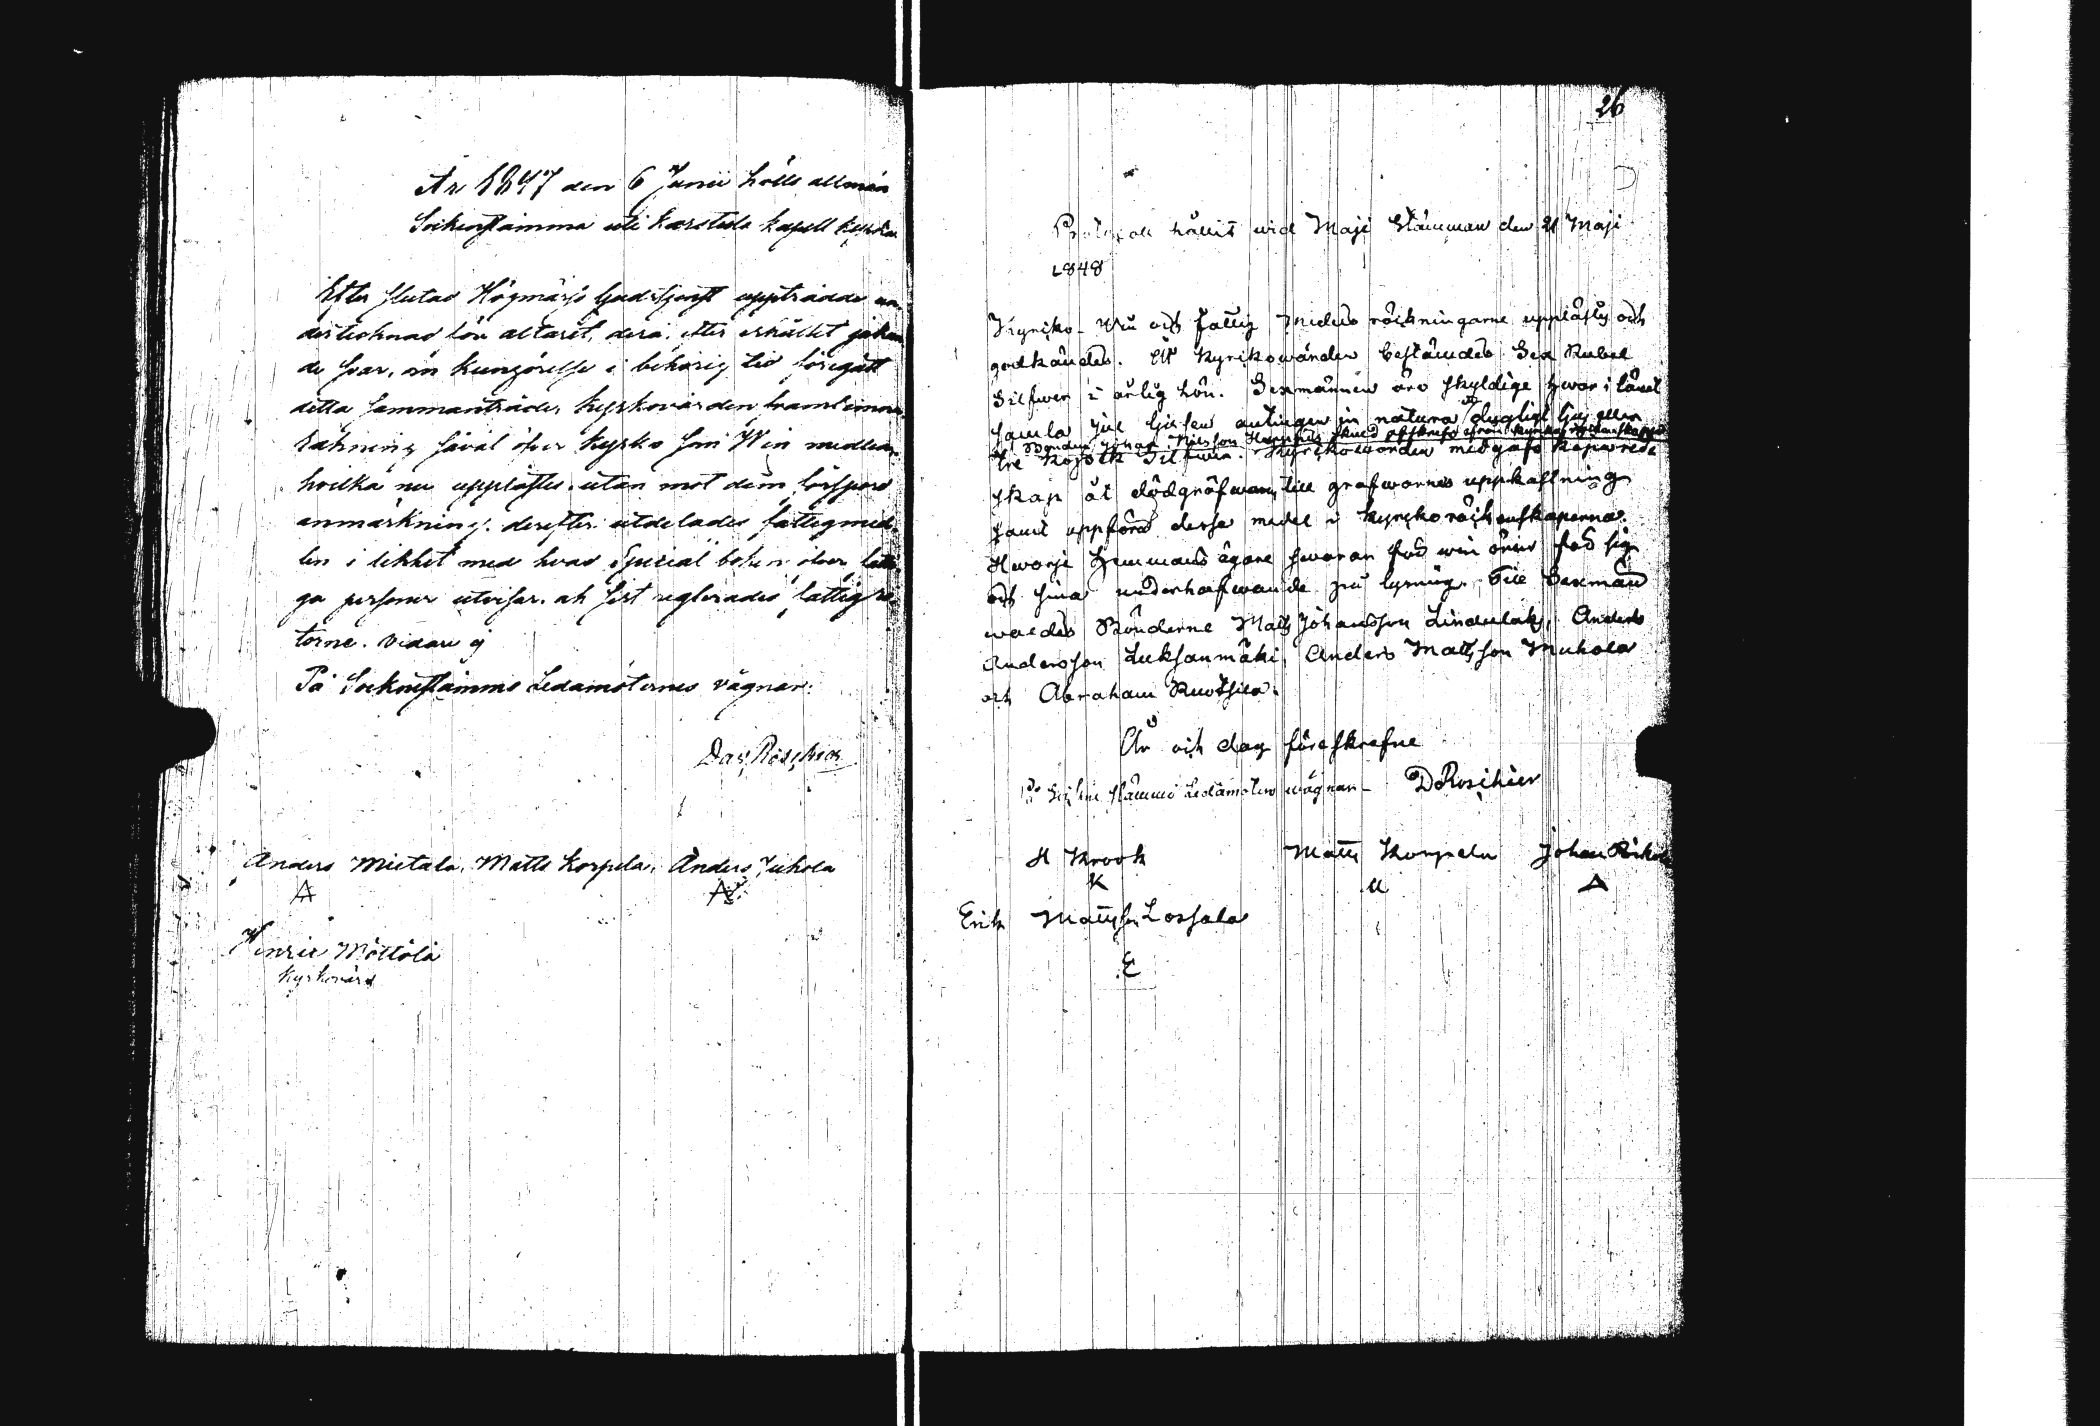 År 1847 den 6 Junii hölls allmän
Sockenstämma uti Karstula kapell kyrka
Efter slutad Högmässo Gudstjenst uppträdde un-
dertecknad för altaret, derå, efter erhållet jakan-
de svar, om kungörelse i behörig tid föregått
detta sammanträde, kyrkovärden framlemna
räkning såväl öfver kyrko som Win medlen,
hvilka nu upplästes utan mot dem försport
anmärkning. derefter utdelades fattigmed-
len i likhet med hvad Special boken öfver fatti-
ga personer utvisar. ah sist reglerades fattig ro-
torne. Vidare ej
På Sockenstämmo Ledamöternes vägnar:
Dav. Roschier
Anders Mietala, Matts Korpela, Anders Juhola
Henric Möttölä
Kyrkovärd
26
Protokoll hållit wid Maji Stämman den 21 Maji
1848
Kyrko- Win och fattig Medels räkningarne upplästes och
godkändes. Åt Kyrkowärden bestämdes Sex Rubel
Silfwer i årlig lön. Sexmännen äro skyldige hwar i länet
samla jul ljusen antingen in natura dugligt ljus eller
Bonden Johan Nilsson
tre kopek Silfwer. Kyrkowärden medgafs
skap åt dödgräfwaren till grafwarnes uppkastning
samt uppföra dessa medel i kyrko räkenskaperna.
Hwarje Hemmans ägare swarar för win ören för sig
och sina underhafwande på lysning. Till Sexmän
waldes Bönderne Matts Johansson Lindulaks, Anders
Andersson Luksanmäki, Anders Mattsson Muhola
och Abraham Ruotsila.
År och dag föreskrefne
På Sockne stämmo Ledamöters wägnar - D Roschier
H Krook Matts Korpela Johan
K M A
Erik Mattsson Lossala
E